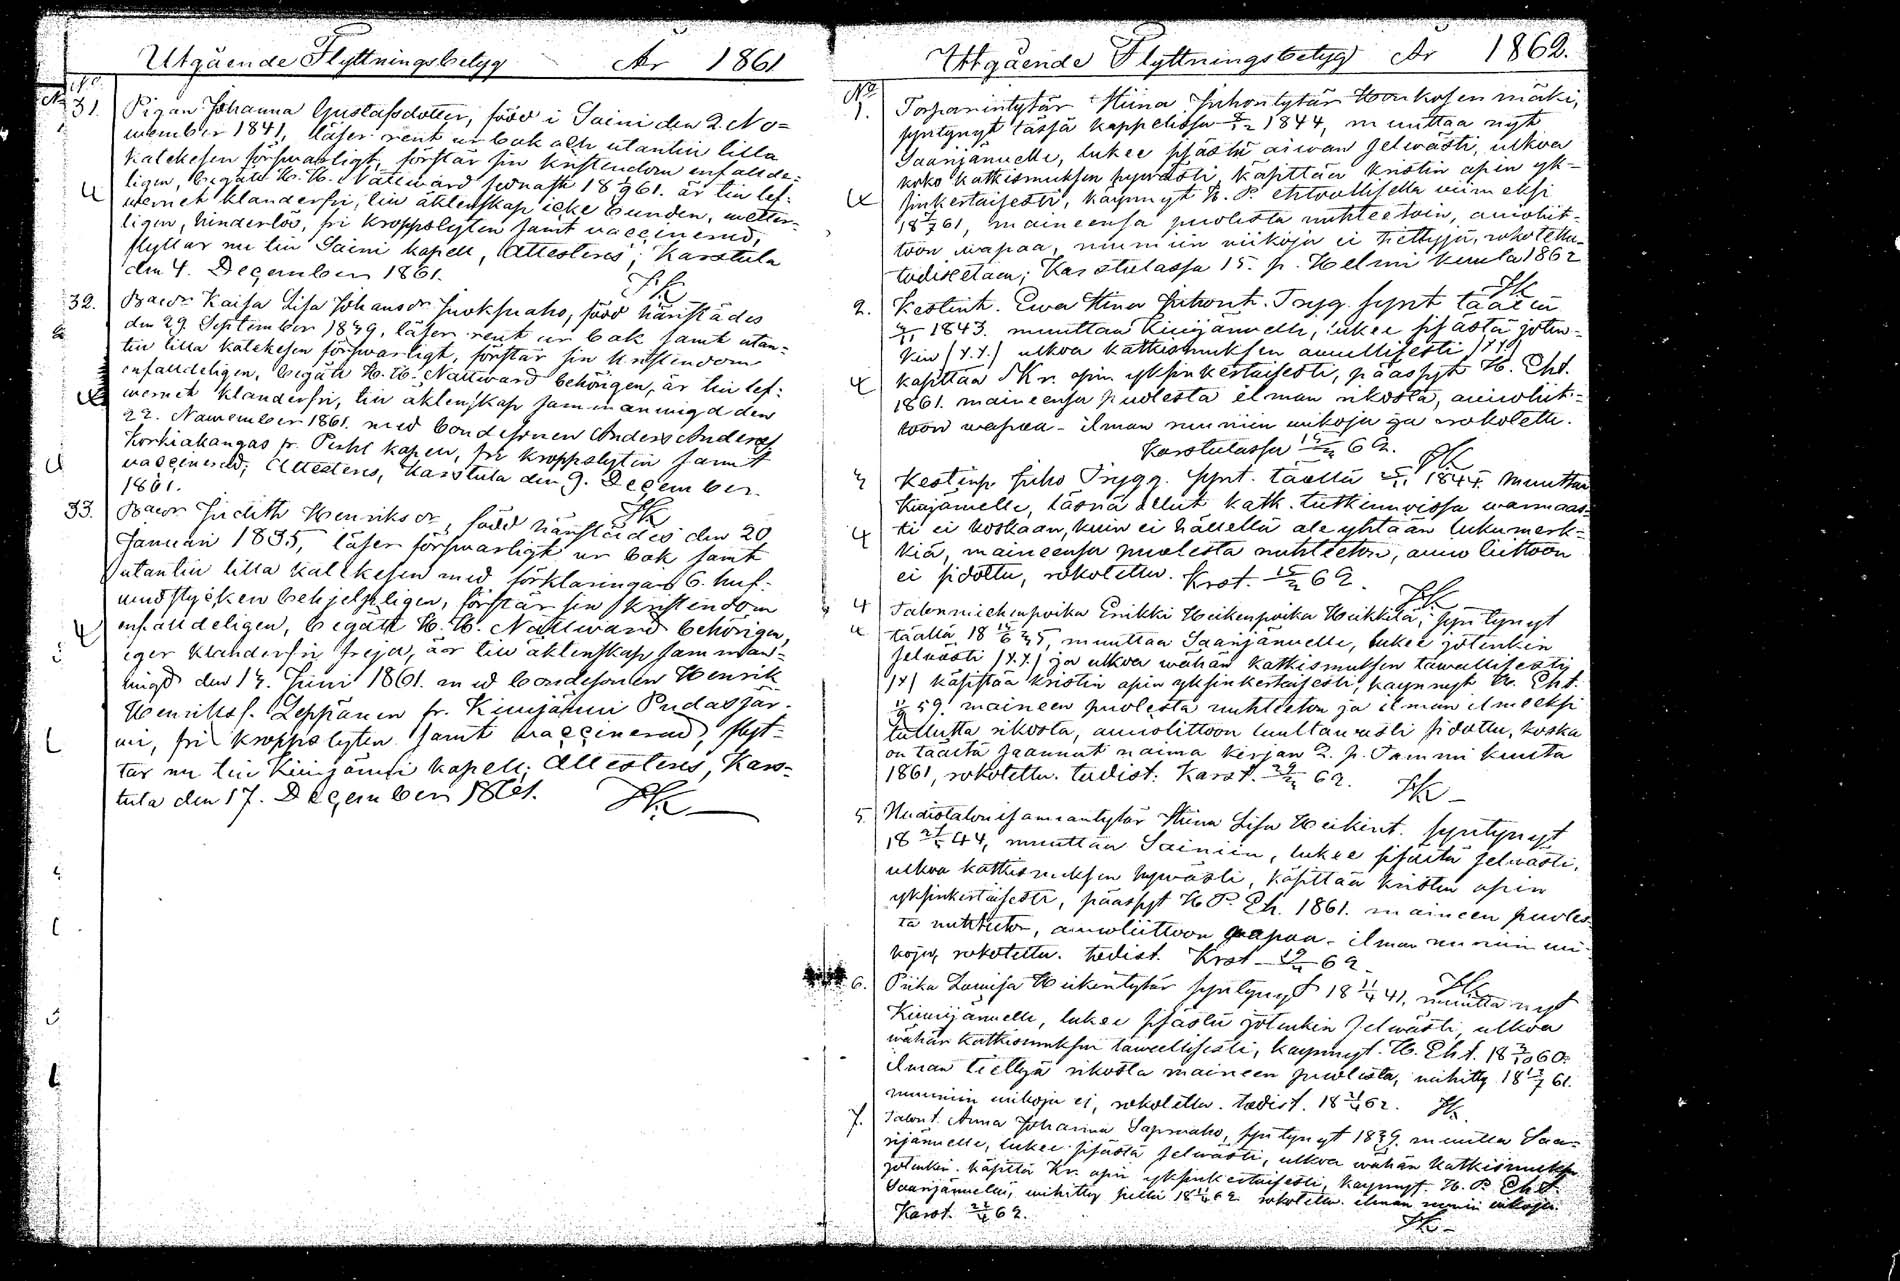 Utgående Flyttningsbetyg År 1861
No
31. Pigan Johanna Gustafsdotter, född i Saini den 2. No=
wember 1841, läser rent ur bok och utantill lilla
katekesen förswarligt, förstår sin kristendom enfallde=
ligen, begått H. H. Nattward sednast 18 61. är till lef=
wernet klanderfri, till äktenskap icke bunden, wetter-
ligen, hinderlös, fri kroppslyten samt vaccinerad,
flyttar nu till Saini kapell, Attesteras; Karstula
den 4. December 1861.
HK
32. Bacdr Kaisa Lisa Johansdr Juoksuaho, född härstädes
den 29. September 1839, läser rent ur bok samt utan=
till lilla katekesen förswarligt, förstår sin kristendom
enfalldeligen, begått H. H. Nattward behörigen, är till lef=
wernet klanderfri, till äktenskap sammanwigd den
22. Nowember 1861. med bondesonen Anders Andersf
Korkiakangas fr. Perho kapell, fri kroppslyten samt
vaccinerad; Attesteras, Karstula den 9. December
1861.
HK
33. Bacdr Judith Henriksdr, född härstädes den 20
Januari 1835, läser förswarligt ur bok samt
utantill lilla katekesen med förklaringar 6. huf-
wudstycken behjelpligen, förstår sin kristendom
enfalldeligen, begått H. H. Nattward behörigen,
eger klanderfri frejd, är till äktenskap samman=
wigd den 14. Juni 1861. med bondesonen Henrik
Henriksf. Leppänen fr. Kiwijärwi Pudasjär-
wi, fri kroppslyten samt vaccinerad, flyt=
tar nu till Kiwijärwi kapell; Attesteras, Kars=
tula den 17. December 1861. HK
Utgående Flyttningsbetyg År 1862.
No
1. Torparintytär Stiina Juhontytär Honkosenmäki,
syntynyt tässä kappelissa 8/12 1844, muuttaa nyt
Saarijärwelle, lukee sisästä aiwan selwästi, ulkoa
koko katkismuksen hywästi, käsittää kristin opin yk-
sinkertaisesti, käynnyt H. P. ehtoollisella wiimeksi
18 7/7 61, maineensa puolesta nuhteetoin, awioliit-
toon wapaa, ruumiin wikoja ei tiettyjä, rokotettu
todistetaan; Karstulassa 15. p. Helmi kuuta 1862
HK
2. Kestint. Ewa Stina Juhont. Trygg. synt täällä
4/11 1843. muuttaa Kiwijärwelle, lukee sisästä joten=
kin (x.x.) ulkoa katkismuksen awullisesti (x.x.)
käsittää Kr. opin yksinkertaisesti, päässyt H. Eht.
1861. maineensa puolesta ilman rikosta, awioliit=
toon wapaa - ilman ruumiin wikoja ja rokotettu.
Karstulassa 15/2 62.
HK
3 Kestinp. Juho Trygg. synt. täällä 25/11 1844. muuttaa
Kiwijärwelle, läsnä ollut katk. tutkinnoissa warmaas=
ti ei koskaan, kuin ei hällellä ole yhtään lukumerk-
kiä, maineensa puolesta nuhteeton, awioliittoon
ei sidottu, rokotettu. Krst. 15/2 62.
HK
4 Talonmiehenpoika Erikki Heikinpoika Heikkilä, syntynyt
täällä 18 15/6 35, muuttaa Saarijärwelle, lukee jotenkin
selwästi (x.x.) ja ulkoa wähän katkismuksen tawallisesti
(x) käsittää kristin opin yksinkertaisesti, käynnyt H. Eht.
11/9 59. maineen puolesta nuhteeton ja ilman ilmeeksi
tullutta rikosta, awioliittoon luultawasti sidottu, koska
on täältä saannut naima kirjan 2. p. Tammi kuuta
1861, rokotettu. todist: Karst. 29/3 62.
HK
5. Uudistalon isännäntytär Stiina Lisa Heikint. syntynyt
18 21/5 44, muuttaa Sainiin, lukee sisältä selwästi,
ulkoa katkismuksen hywästi, käsittää kristin opin
yksinkertaisesti, päässyt H. P. Eh. 1861. maineen puoles-
ta nuhteeton, awioliittoon wapaa - ilman ruumiin wi-
koja, rokotettu. todist. Krst. 19/4 62
HK
6. Piika Lowisa Heikintytär syntynyt 18 11/4 41, muuttaa nyt
Kiwijärwelle, lukee sisästä jotenkin selwästi, ulkoa
wähän katkismuksen tawallisesti, käynnyt H. Eht. 18 3/10 60.
ilman tiettyä rikosta maineen puolesta, wihitty 18 13/7 61.
ruumiin wikoja ei, rokotettu. todist. 18 21/4 62. HK
7. Talont. Anna Johanna Saponaho, syntynyt 1839. muuttaa Saa=
rijärwelle, lukee sisästä selwästi, ulkoa wähän katkismuksen
jotenkin. käsittää Kr. opin yksinkertaisesti, käynnyt H. P. Eht.
Saarijärwellä, wihitty siellä 18 62. rokotettu. ilman ruumiin wikoja.
Karst. 22/4 62.
HK